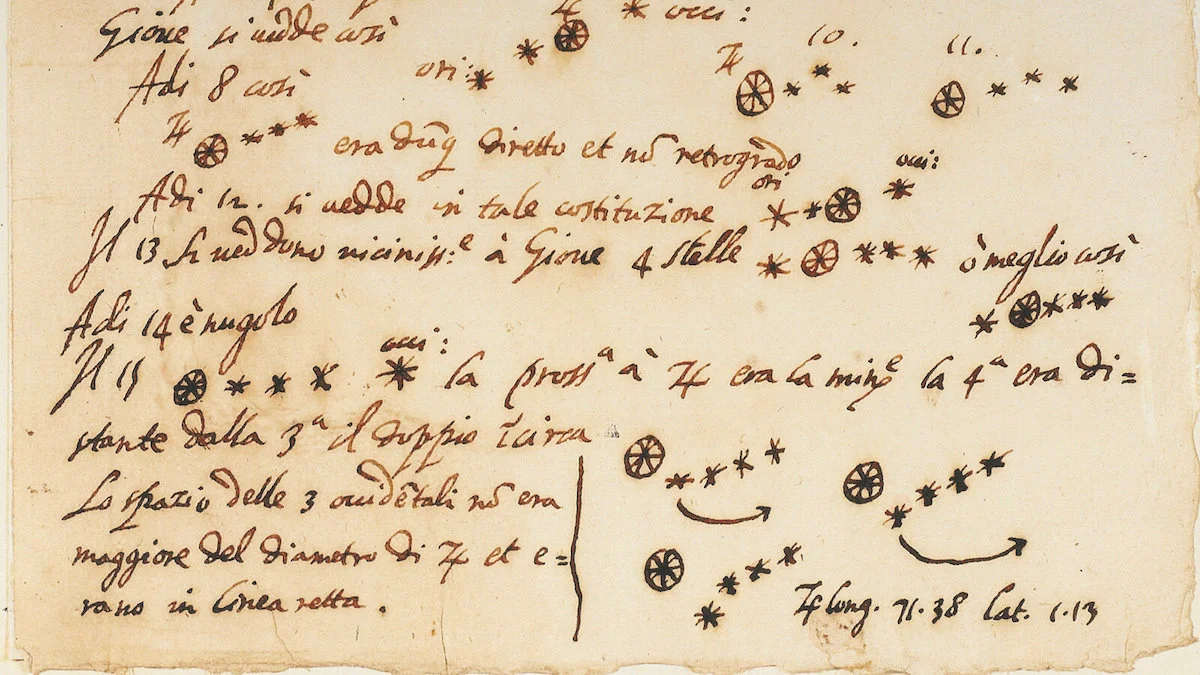 Giove si vedde così ♃ occi:
Adi 8 così ori: ♃ 10. 11.
♃ era dūq diretto et nō retrogrado
Adi 12. si vedde in tale costituzione ori occi:
Il 13 si veddono vicinissᵉ: à Giove 4 stelle ò meglio così
Adi 14 è nugolo
Il 15 occi: la prossᵃ à ♃ era la minᵉ la 4ᵃ era di=
stante dalla 3ᵃ il doppio īcirca
Lo spazio delle 3 occidētali nō era
maggiore del diametro di ♃ et e=
rano in linea retta.
♃ long. 71.38 lat. 1.13